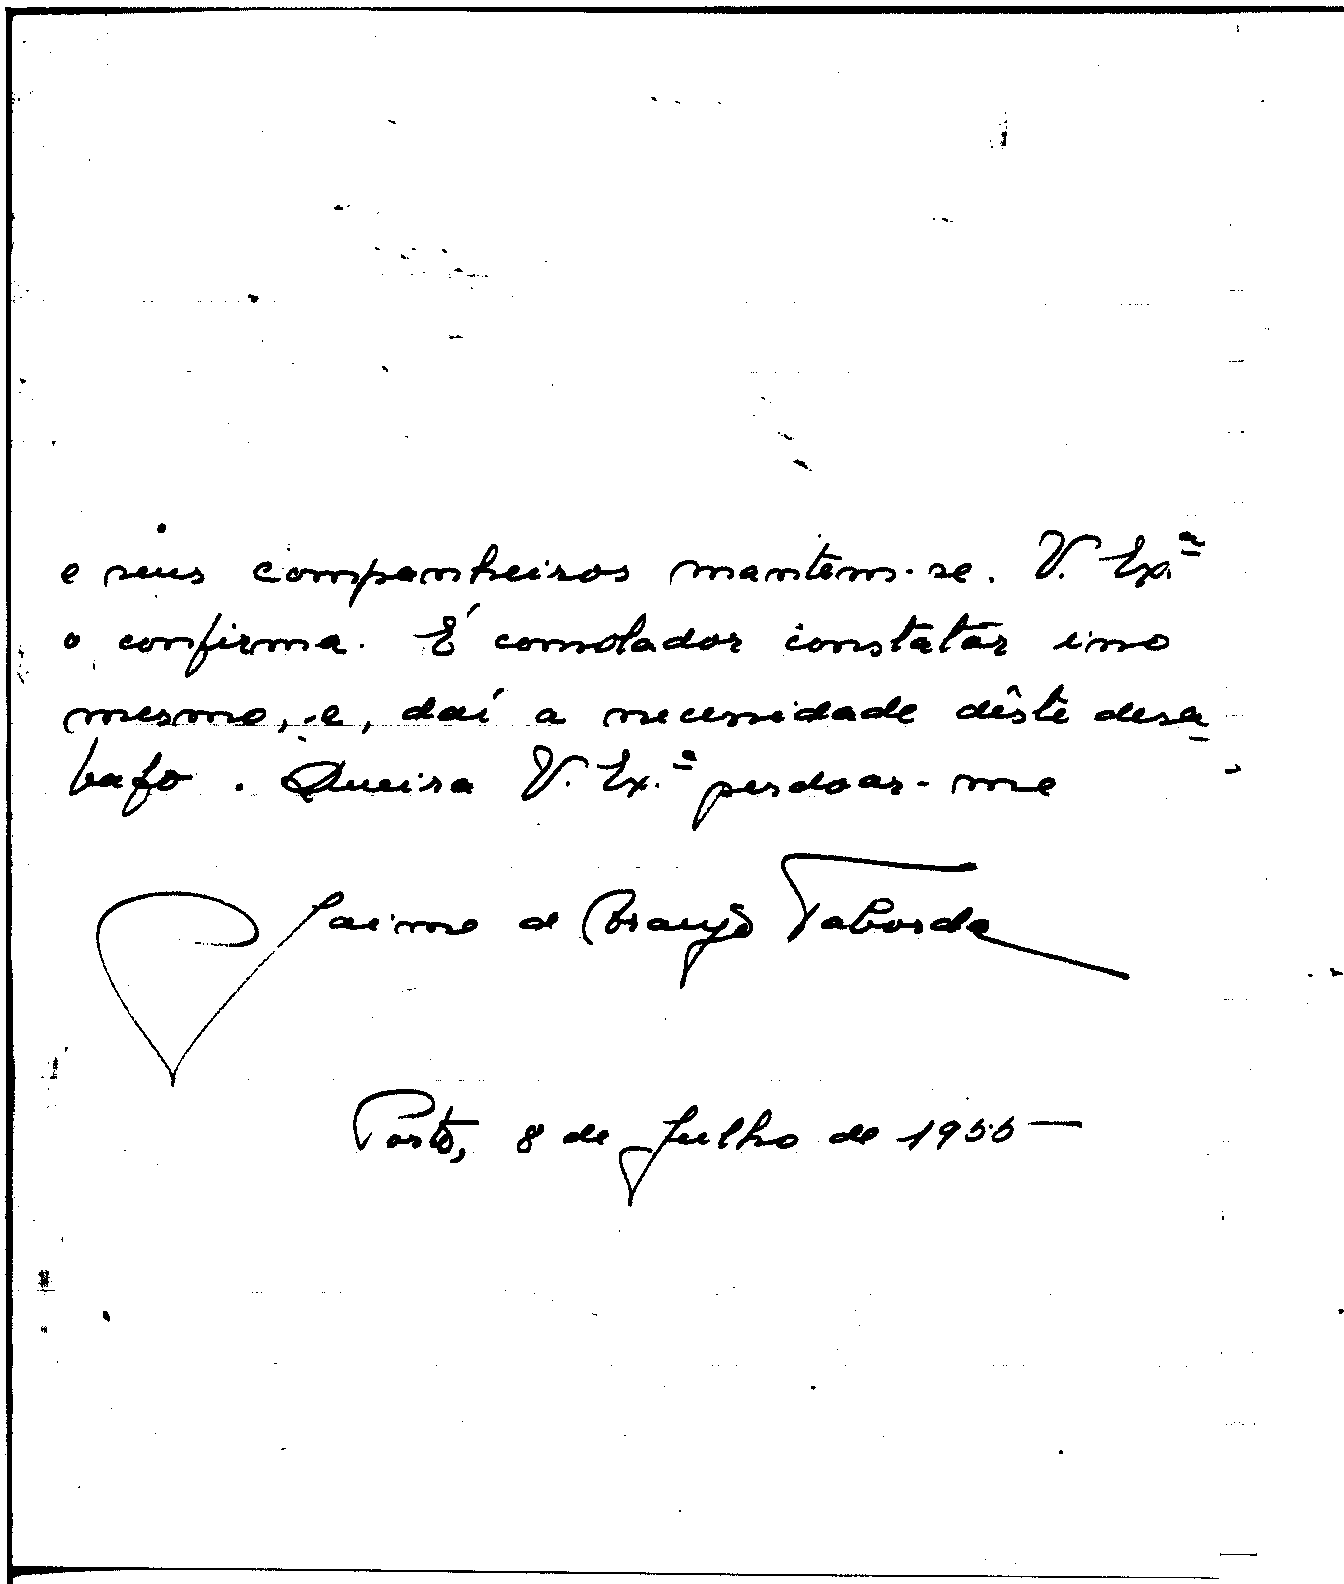 e seus companheiros mantêm-se. V. Ex.ª
o confirma. É consolador constatar isso
mesmo, e, daí a necessidade dêste desa-
bafo. Queira V. Ex.ª perdoar-me
Jaime de Araujo Taborda
Porto, 8 de Julho de 1955 —